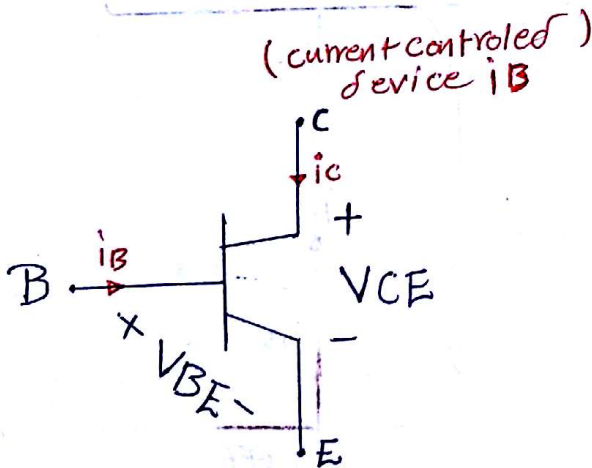 (current controled)
device iB
C
ic
+
iB
B
VCE
+ VBE -
-
E